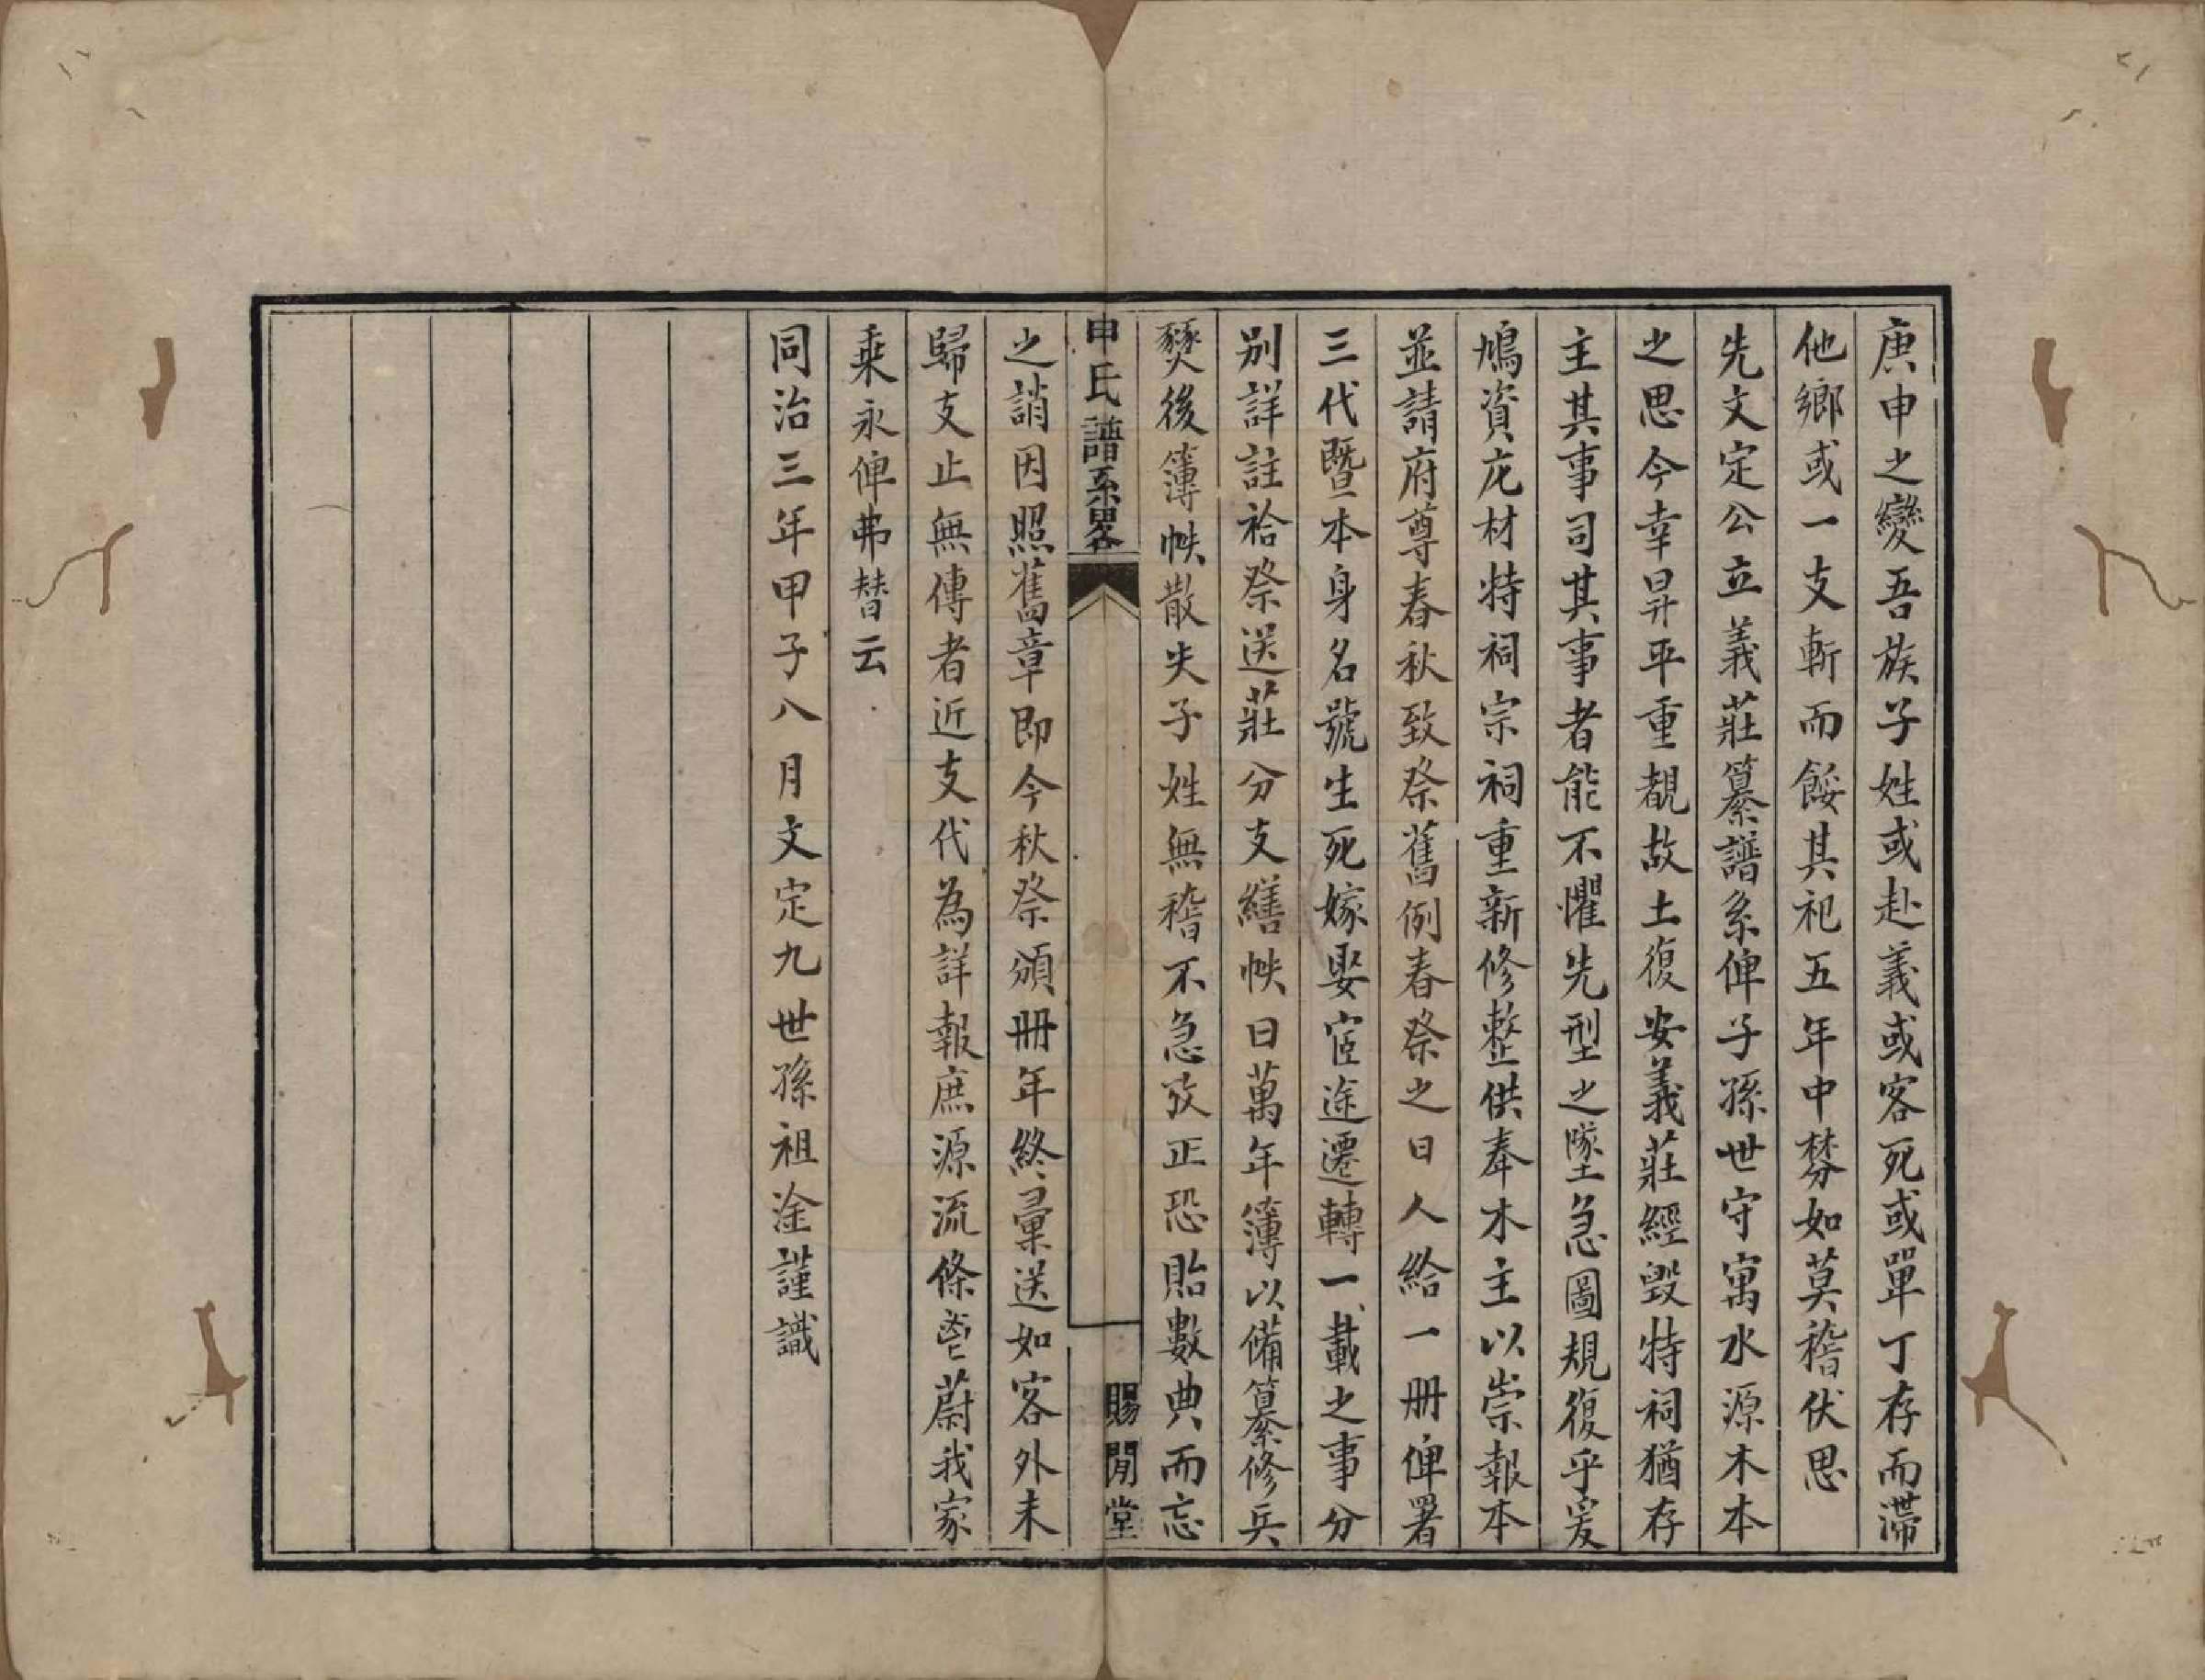 庚申之變吾族子姓或赴義或客死或單丁存而滯
他鄉或一支斬而餒其祀五年中棼如莫稽伏思
先文定公立義莊纂譜系俾子孫世守寓水源木本
之思今幸昇平重覩故土復安義莊經毀特祠猶存
主其事司其事者能不懼先型之墜急圖規復乎爰
鳩資庀材特祠宗祠重新修整供奉木主以崇報本
並請府尊春秋致祭舊例春祭之日人給一冊俾署
三代暨本身名號生死嫁娶宦途遷轉一載之事分
別詳註祫祭送莊分支繕帙曰萬年簿以備纂修兵
燹後簿帙散失子姓無稽不急攷正恐貽數典而忘
申氏譜系畧
賜閒堂
之誚因照舊章即今秋祭頒冊年終彙送如客外未
歸支止無傳者近支代為詳報庶源流條鬯蔚我家
乘永俾弗替云
同治三年甲子八月文定九世孫祖淦謹識